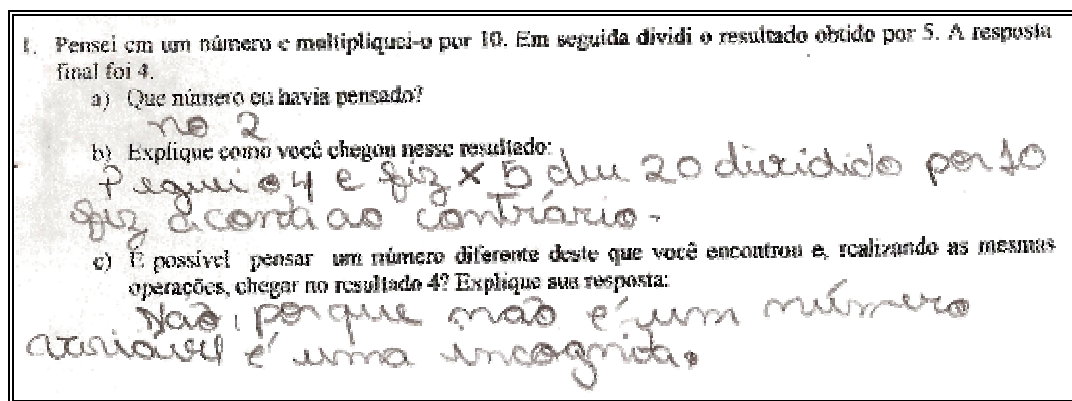 1. Pensei em um número e multipliquei-o por 10. Em seguida dividi o resultado obtido por 5. A resposta
final foi 4.
a) Que número eu havia pensado?
no 2
b) Explique como você chegou nesse resultado:
Peguei o 4 e fiz x 5 deu 20 dividido por 10
fiz a conta ao contrário.
c) É possível pensar um número diferente deste que você encontrou e, realizando as mesmas
operações, chegar no resultado 4? Explique sua resposta:
Não, porque não é um número
variável é uma incognita.